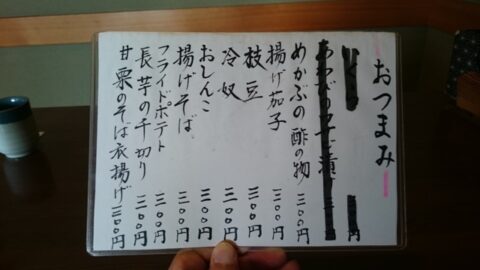 おつまみ
めかぶの酢の物 三〇〇円
揚げ茄子 三〇〇円
枝豆 三〇〇円
冷奴 二〇〇円
おしんこ 二〇〇円
揚げそば 二〇〇円
フライドポテト 三〇〇円
長芋の千切り 三〇〇円
甘栗のそば衣揚げ 三〇〇円